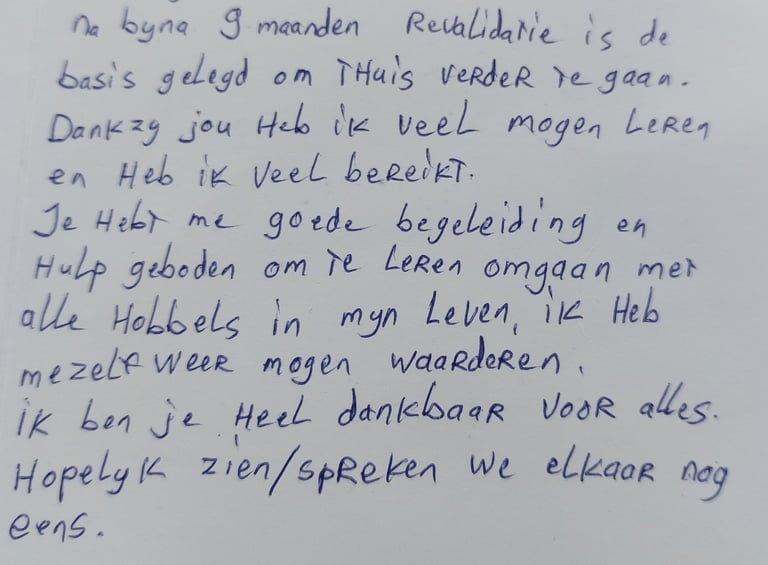 na byna 9 maanden Revalidatie is de
basis gelegd om THuis verder te gaan.
Dankzy jou Heb ik veel mogen Leren
en Heb ik veel bereikt.
Je Hebt me goede begeleiding en
Hulp geboden om te Leren omgaan met
alle Hobbels in myn Leven, ik Heb
mezelf weer mogen waarderen.
ik ben je Heel dankbaar voor alles.
Hopelyk zien/spreken we elkaar nog
eens.